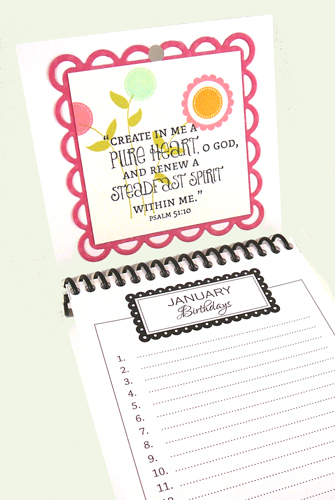 “CREATE IN ME A
PURE HEART, O GOD,
AND RENEW A
STEADFAST SPIRIT
WITHIN ME.”
PSALM 51:10
JANUARY
Birthdays
1.
2.
3.
4.
5.
6.
7.
8.
9.
10.
11.